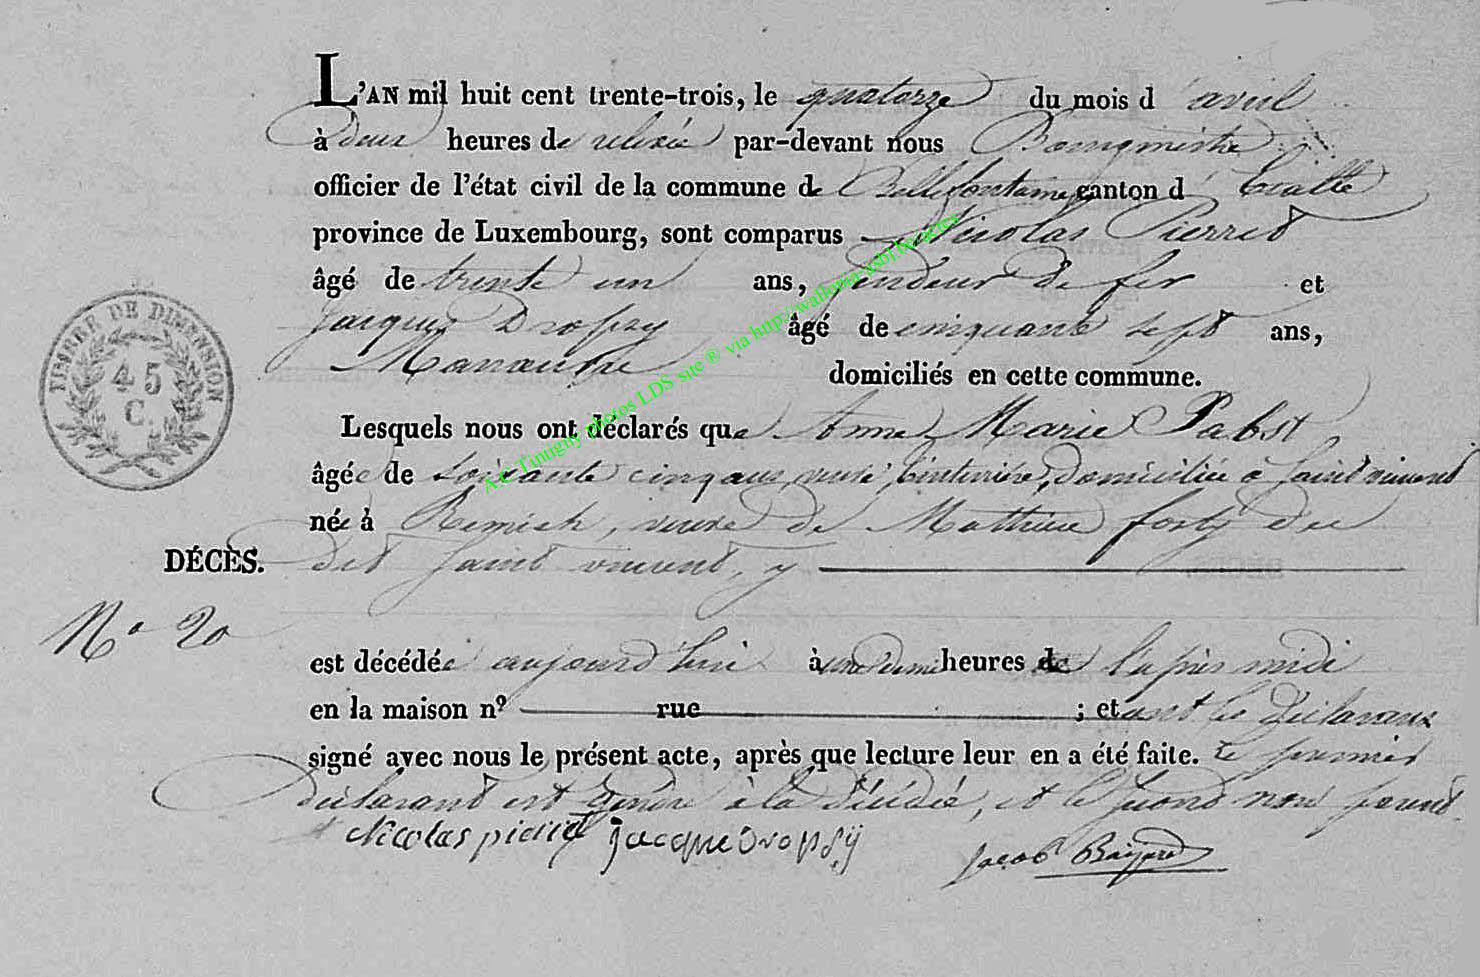 L'AN mil huit cent trente-trois, le quatorze du mois d'avril
à deux heures de relevée par-devant nous Bourgmestre
officier de l'état civil de la commune de Bellefontaine canton d'Etalle
province de Luxembourg, sont comparus Nicolas Pierret
âgé de trente un ans, fendeur de fer et
Jacques Dropsy âgé de cinquante sept ans,
Manœuvre domiciliés en cette commune.
Lesquels nous ont déclarés que Anne Marie Pabst,
âgée de soixante cinq ans, domiciliée à Saint vincent
née à Remich, veuve de Mathieu forty du
dit Saint vincent, y
DÉCÈS.
No 20
est décédée aujourd'hui à une & demi heures de l'après midi
en la maison nº rue ; et ont les Déclarans
signé avec nous le présent acte, après que lecture leur en a été faite. Le premier
déclarant est gendre à la décédée, et le second non parent.
Nicolas pierret Jacque Dropsÿ
Jacob
TIMBRE DE DIMENSION
45
C.
A.C Tintigny photos LDS site ® via http://wallonia-asbl.be/actes